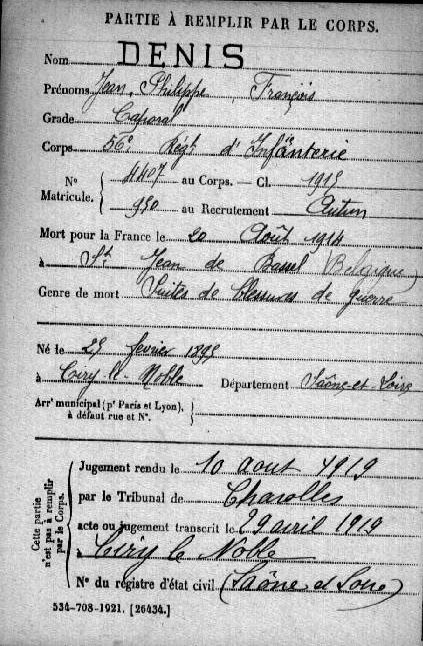 PARTIE À REMPLIR PAR LE CORPS.
Nom DENIS
Prénoms Jean, Philippe François
Grade Caporal
Corps 56e Régt d'Infanterie
No Matricule. 4407 au Corps. — Cl. 1915
950 au Recrutement Autun
Mort pour la France le 20 Août 1914
à St Jean de Bassel (Belgique)
Genre de mort Suites de blessures de guerre
Né le 25 février 1895
à Ciry-le-Noble Département Saône-et-Loire
Arrt municipal (pr Paris et Lyon), à défaut rue et No.
Cette partie n'est pas à remplir par le Corps.
Jugement rendu le 10 aout 1919
par le Tribunal de Charolles
acte ou jugement transcrit le 29 avril 1919
à Ciry le Noble
No du registre d'état civil (Saône et Loire)
534-708-1921. [26434.]